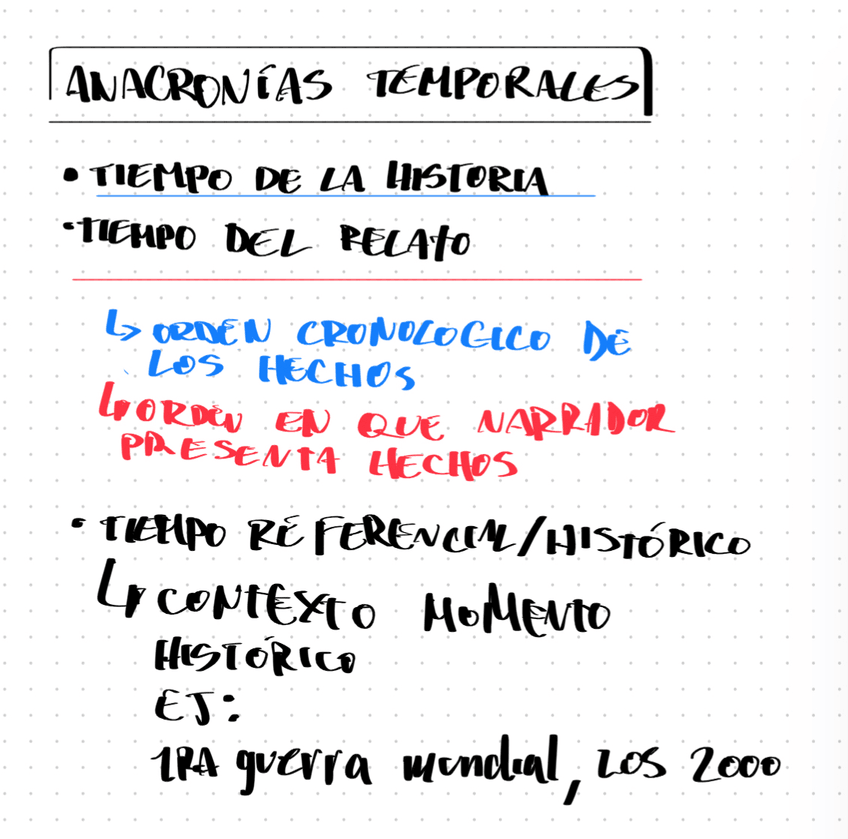 ANACRONÍAS TEMPORALES
• TIEMPO DE LA HISTORIA
• TIEMPO DEL RELATO
↳ ORDEN CRONOLOGICO DE
LOS HECHOS
↳ ORDEN EN QUE NARRADOR
PRESENTA HECHOS
• TIEMPO REFERENCIAL/HISTÓRICO
↳ CONTEXTO MOMENTO
HISTÓRICO
EJ:
1RA guerra mundial, LOS 2000